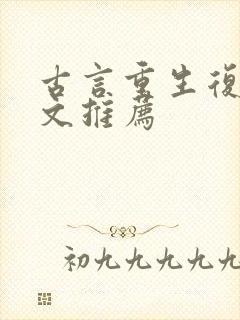 古言重生復
文推薦
初九九九九九